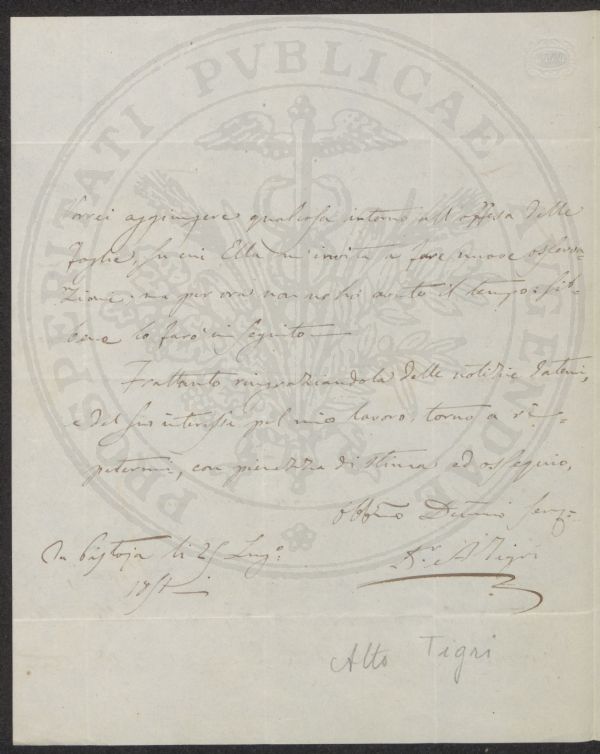 PROSPERITATI PVBLICAE AVGENDAE
Vorrei aggiungere qualcosa intorno all'offesa delle
foglie, su cui Ella m'invita a fare nuove osserva-
zioni, ma per ora non ne ho avuto il tempo: seb-
bene lo farò in seguito —
Frattanto ringraziandola delle notizie datemi,
e del suo interesse pel mio lavoro, torno a ri-
petermi, con pienezza di stima ed ossequio,
Obbmo Devmo Serv.
Da Pistoja li 25 Lug.o
Dr. A Tigri
Atto Tigri